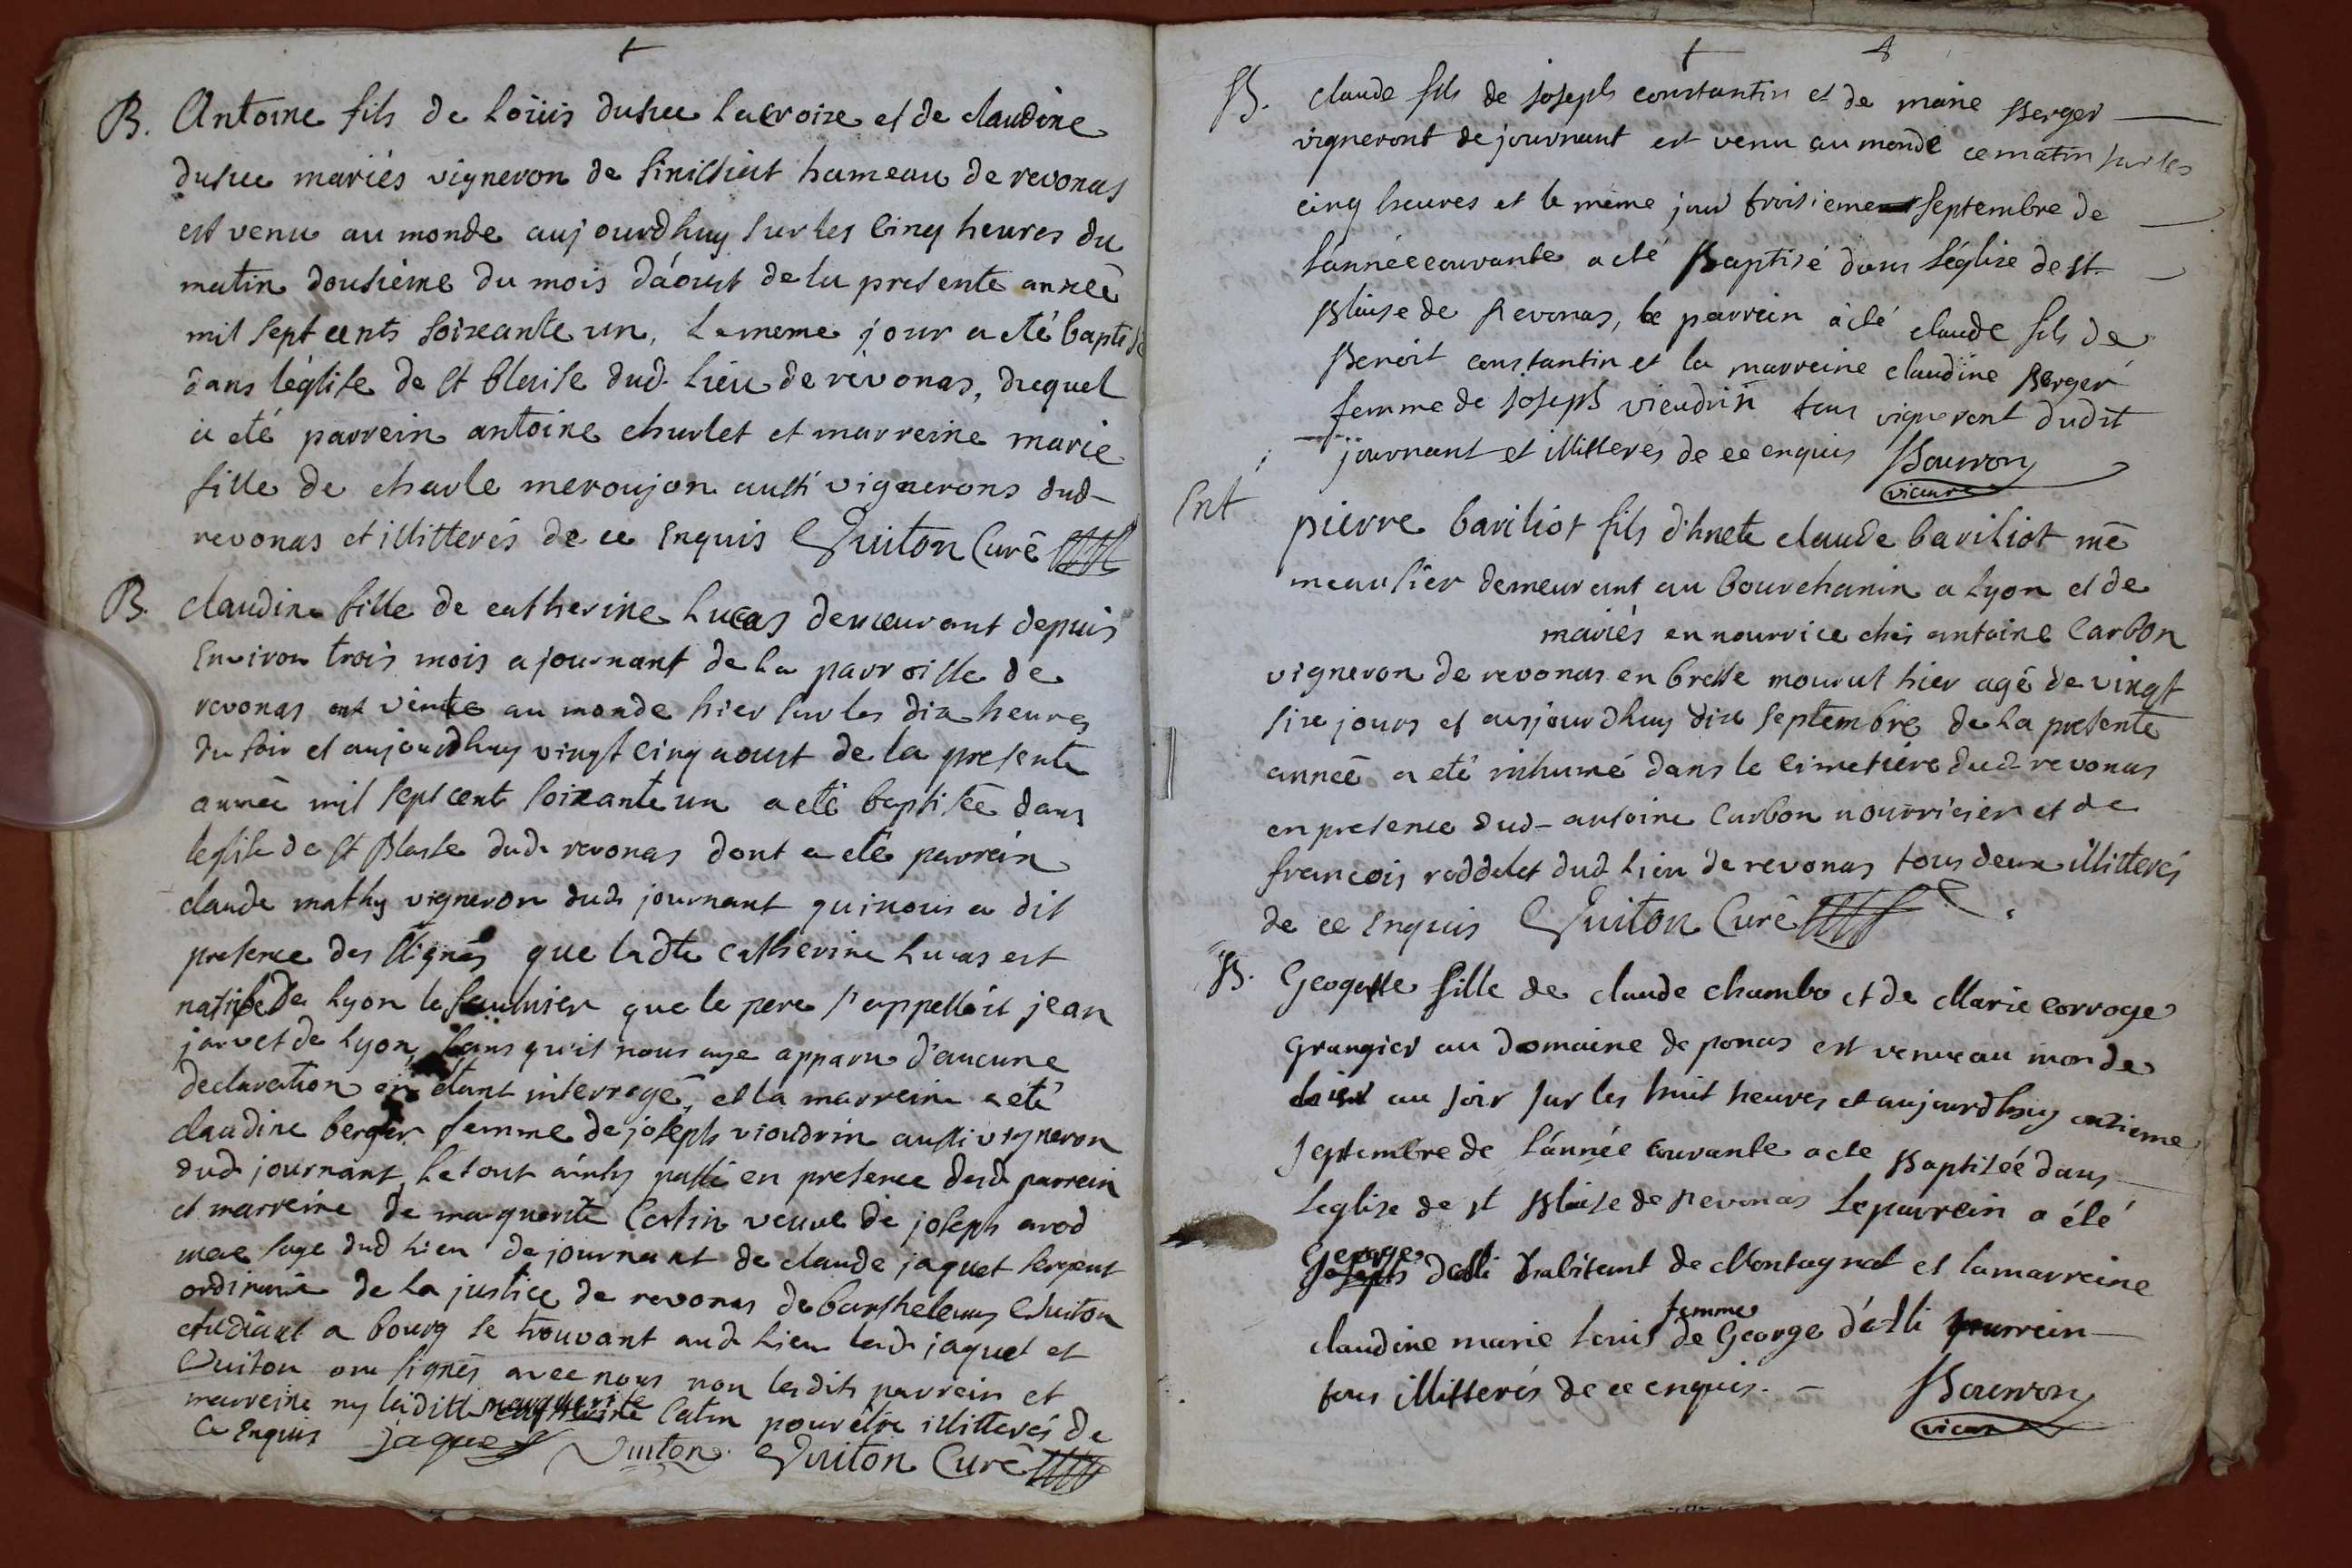 B. Antoine fils de Loüis dusuc Lacroize et de claudine
dusuc mariés vigneron de Sinissiat hameau de revonas
est venu au monde aujourdhuy sur les Cinq heures du
matin dousième du mois d'áoust de la presente année
mil sept cents soixante un, Le meme jour a eté baptisé
dans l'église de st blaise dud. Lieu de révonas, duquel
a eté parrein antoine churlet et marreine marie
fille de charle meroujon aussi vignerons dud-
revonas et illitterés de ce Enquis Guiton Curé
B. claudine fille de catherine Lucas demeurant depuis
Environ trois mois a journant de la parroisse de
revonas est venüe au monde hier sur les dix heures
du soir et aujourdhuy vingt cinq aoust de la presente
année mil sept cent soixante un a eté baptisée dans
leglise de st Blaise dud. revonas dont a eté parrein
claude mathy vigneron dud. journant qui nous a dit
presence des signés que ladte catherine Lucas est
native de Lyon le saulnier que le pere s'appelloit jean
jarvet de Lyon, sans qu'il nous aye apparu d'aucune
declaration en etant interrogé, et la marreine a eté
claudine berger femme de joseph vioudrin aussi vigneron
dud. journant, Le tout ainsy passé en presence desd. parrein
et marreine de marguerite Catin veuve de joseph arod
mere sage dud Lieu de journant de claude jaquet sergent
ordinaire de la justice de revonas de barthelemy Guiton
etudiant a bourg se trouvant aud. Lieu lesd. jaquet et
Guiton ont signés avec nous non lesdits parrein et
marreine ny laditte marguerite Catin pour être illitterés de
Ce Enquis jaquet Guiton Guiton Curé
B. claude fils de joseph constantin et de marie Berger
vigneront de journant est venu au monde ce matin sur les
cinq heures et le même jour troisieme septembre de
l'année courante a eté Baptisé dans l'église de st-
Blaise de Revonas, le parrein a eté claude fils de
Benoit constantin et la marreine claudine Berger
femme de joseph vieudrin tous vigneront dudit
journant et illitterés de ce enquis Bouvron
vicaire
Ent pierre bariliot fils d'hnete claude bariliot me
meaulier demeurant au bourchanin a Lyon et de
mariés en nourrice chés antoine Carbon
vigneron de revonas en bresse mourut hier agé de vingt
six jours et aujourdhuy dix septembre de la presente
année a eté inhumé dans le Cimetiere dud- revonas
en presence dud- antoine Carbon nourricier et de
francois roddelet dud. Lieu de revonas tous deux illitterés
de ce Enquis Guiton Curé
B. Geogette fille de claude chambo et de Marie corroge
Grangier au Domaine de ponas est venue au monde
hier au soir sur les huit heures et aujourdhuy onzieme
septembre de l'année courante a ete Baptisée dans
L'eglise de st Blaise de Revonas Le parrein a été
George
Joseph habitant de Montagnat et la marreine
femme
claudine marie Louis de George parrein
tous illitterés de ce enquis. - Bouvron
vicaire